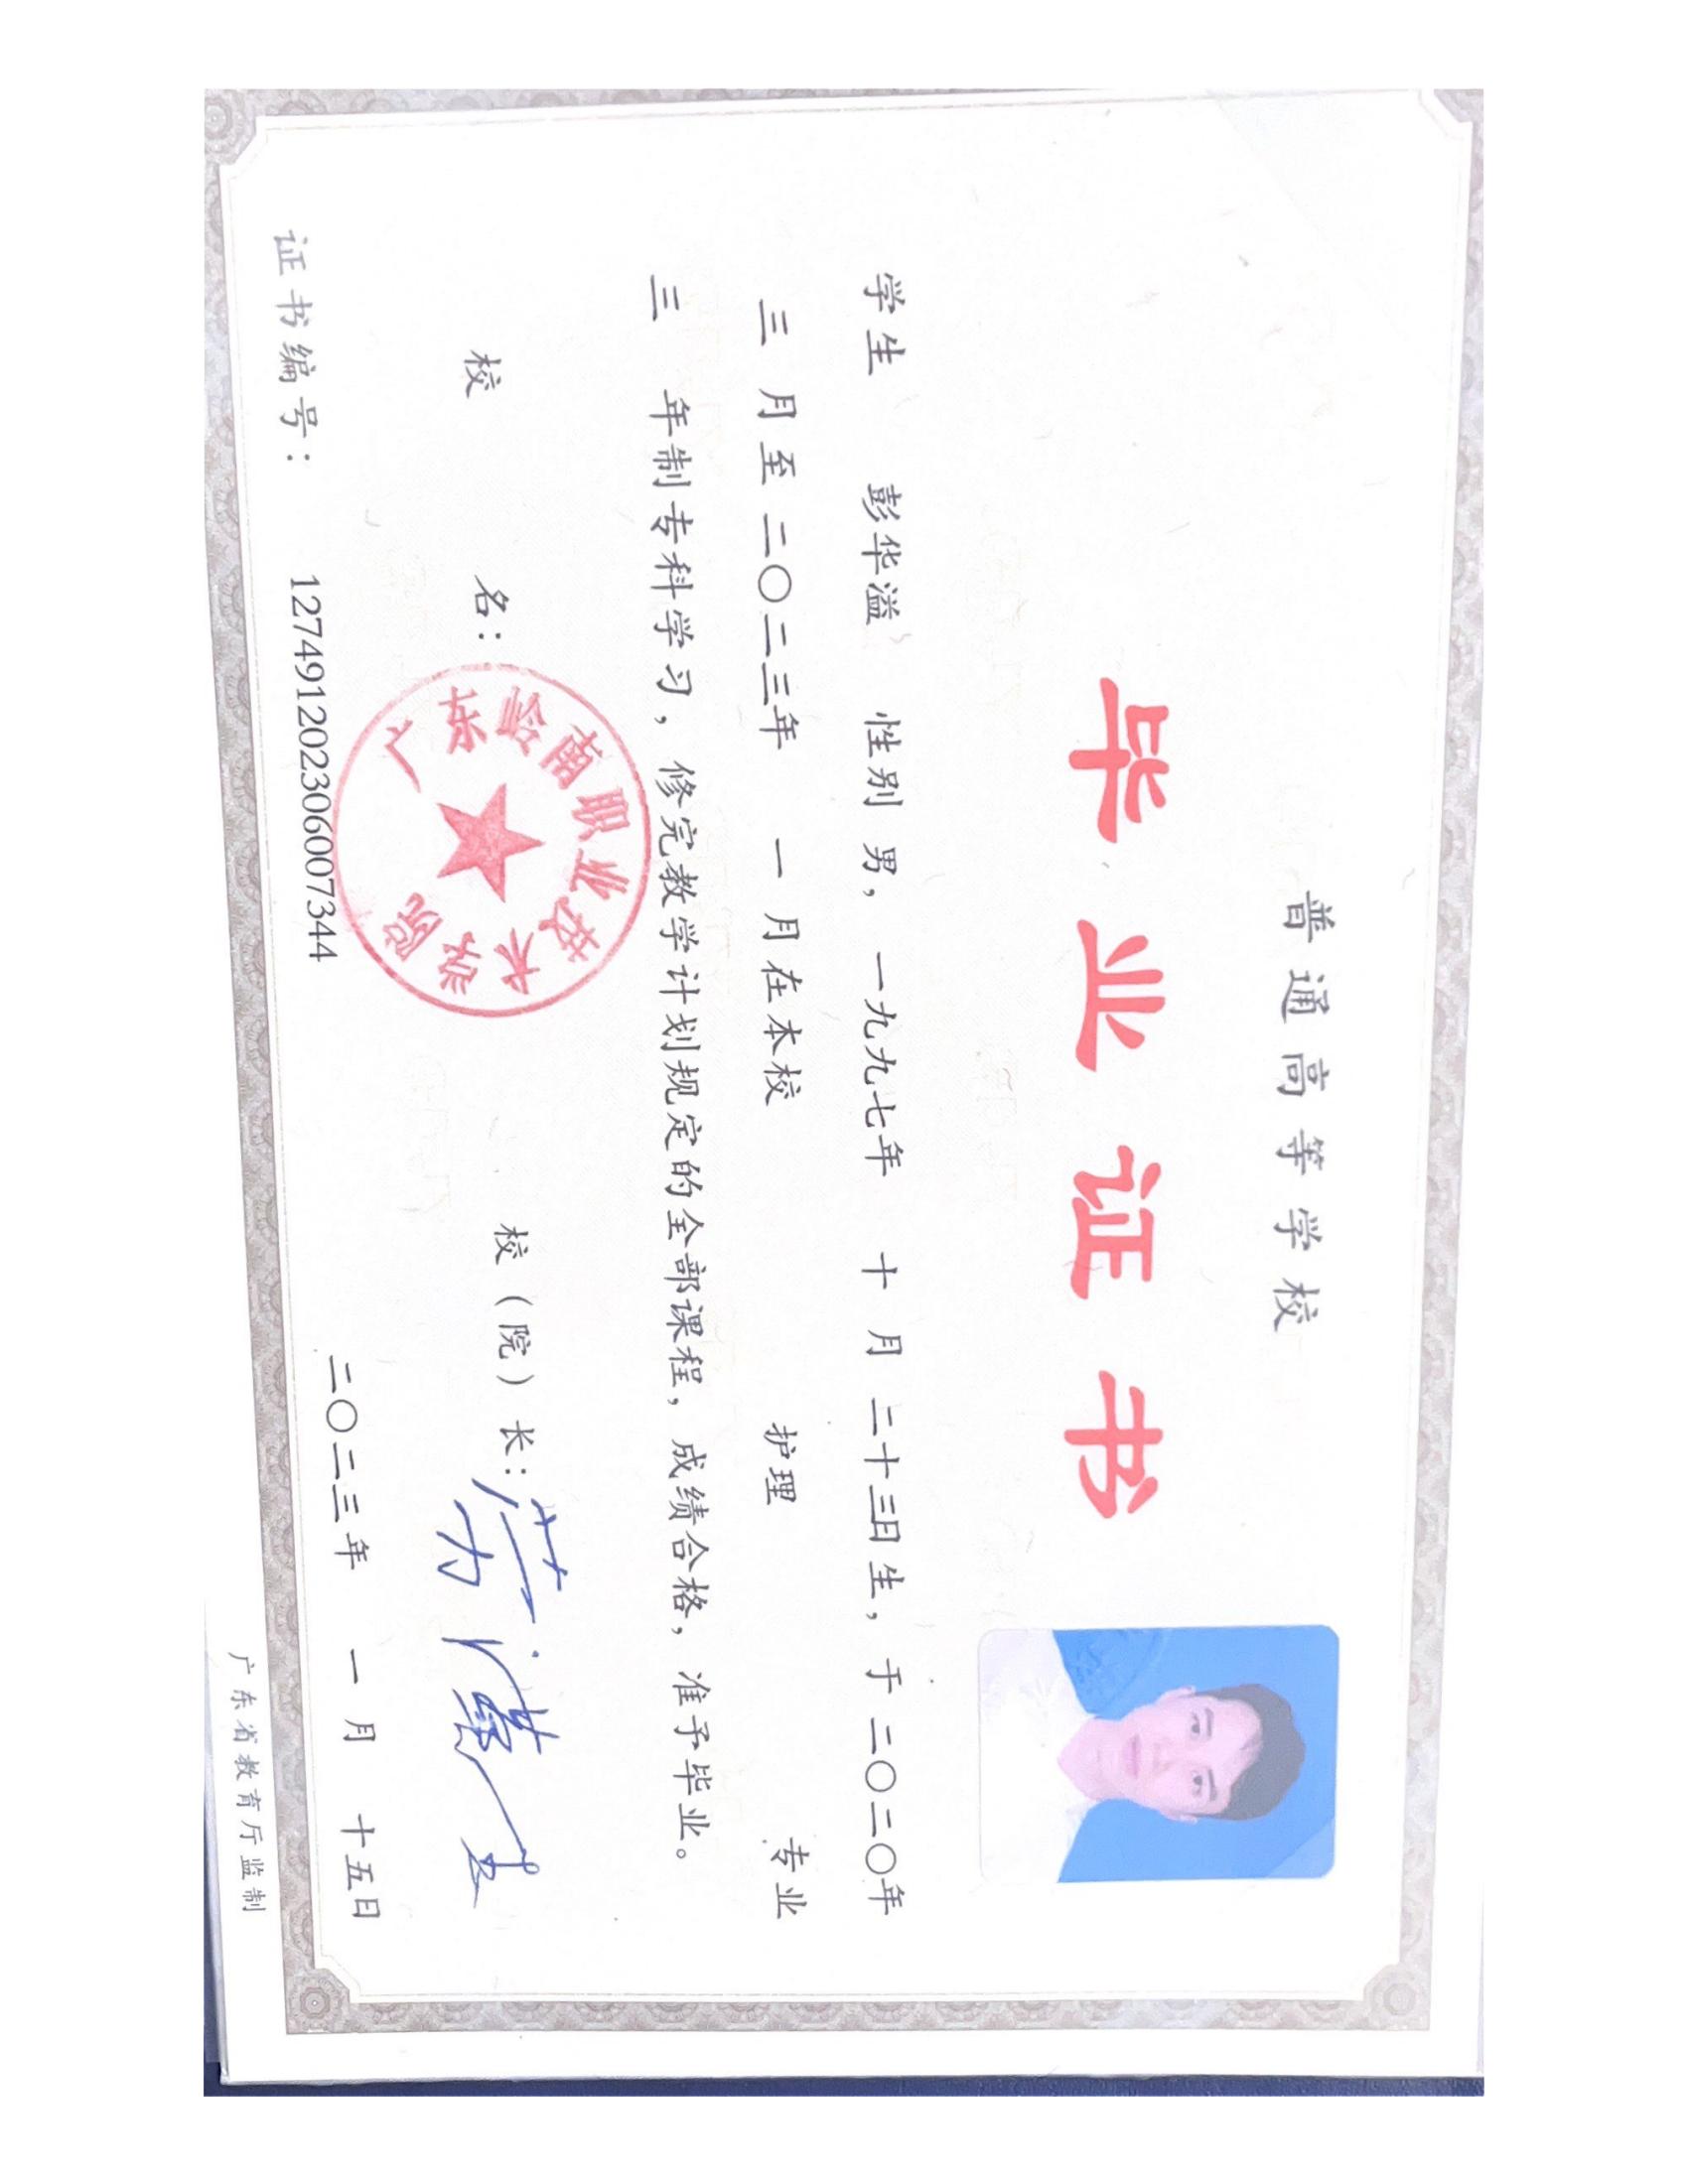 普通高等学校
毕业证书
学生 彭华溢 性别 男，一九九七年 十 月 二十三日生，于二〇二〇年
三 月至二〇二三年 一 月在本校 护理 专业
三 年制专科学习，修完教学计划规定的全部课程，成绩合格，准予毕业。
校 名：
广东岭南职业技术学院
校（院）长：
二〇二三年 一 月 十五日
证书编号： 127491202306007344
广东省教育厅监制